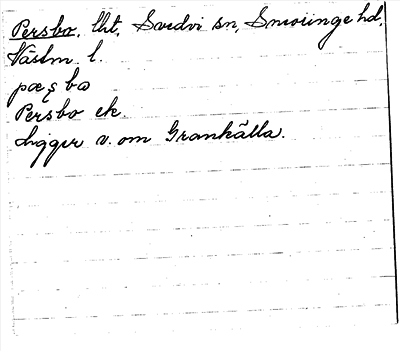 Persbo, lht, Svedvi sn, Snevringe hd,
Västm. l.
pæʂ bω
Persbo ek.
Ligger v. om Grankälla.